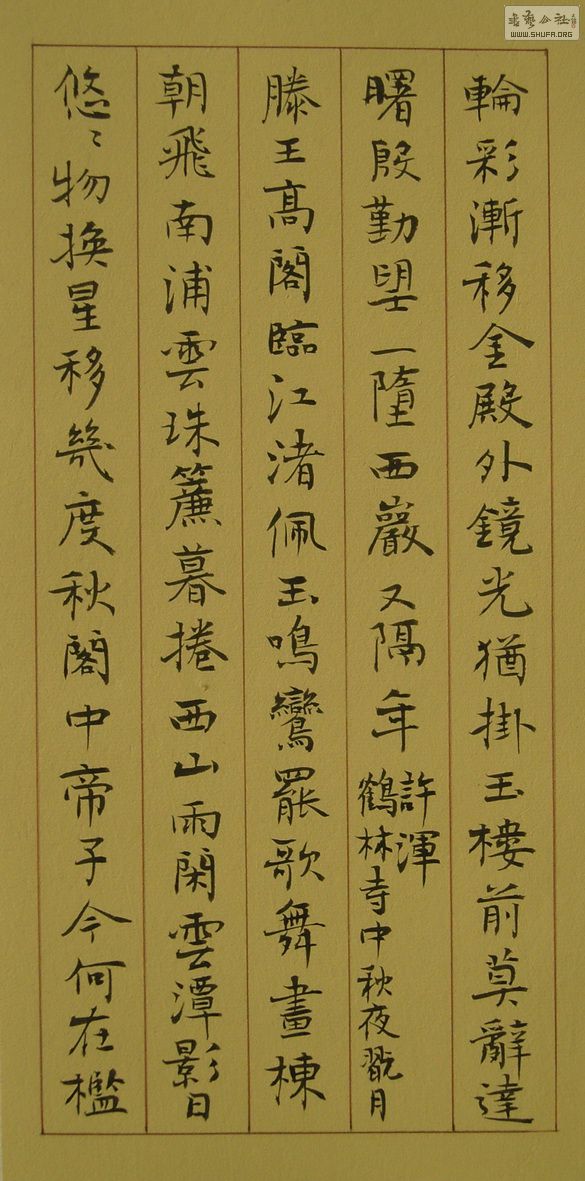 輪彩漸移金殿外鏡光猶掛玉樓前莫辭達
曙殷勤望一墮西巖又隔年
許渾
鶴林寺中秋夜翫月
滕王高閣臨江渚佩玉鳴鸞罷歌舞畫棟
朝飛南浦雲珠簾暮捲西山雨閑雲潭影日
悠〻物換星移幾度秋閣中帝子今何在檻
書藝公社
WWW.SHUFA.ORG